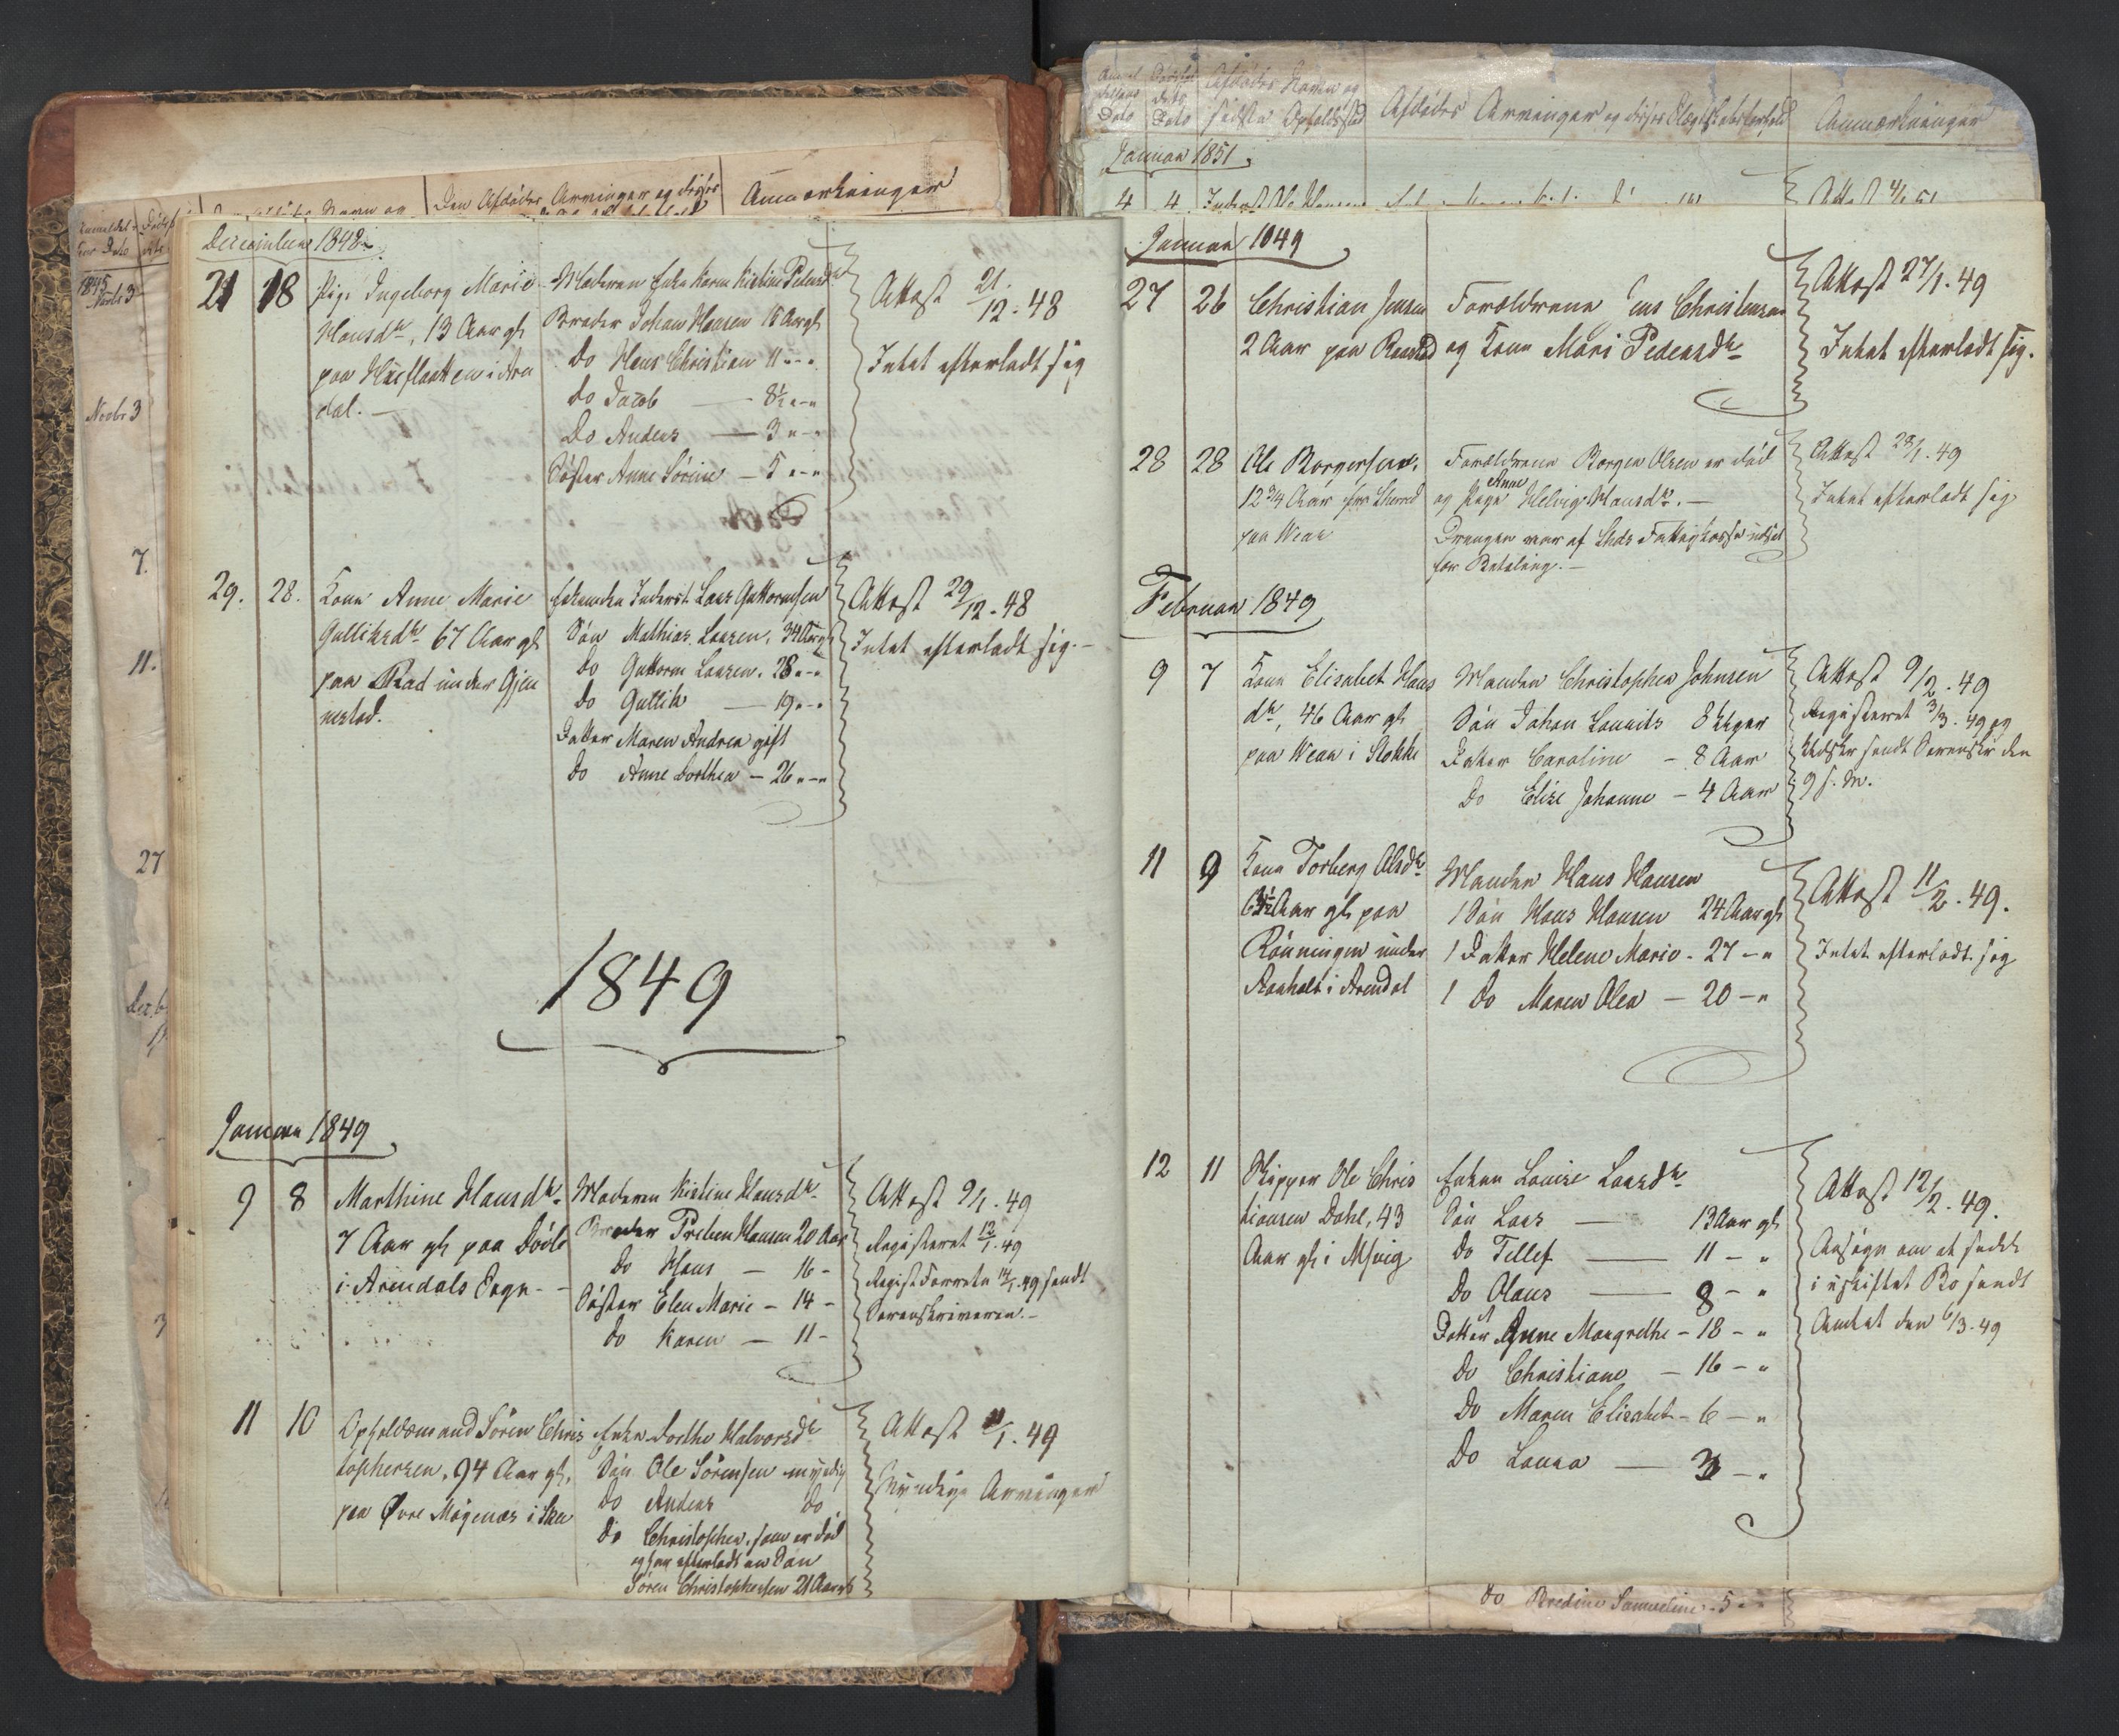 Anmærkninger
Den Afdødes Arvinger og disses
December 1848
21 18 Pige Ingeborg Marie
Hansdtr, 13 Aar gl
paa Huseflaatten i Aren
dal.
Moderen Enke Karen Kirstine Pedersdtr
Broder Johan Hansen 18 Aar gl
Do Hans Christian 11 " - "
Do Jacob — 8½ " - "
Do Anders — 3 " - "
Søster Anne Sørine — 5 " - "
Attest 21/12. 48
Intet efterladt sig
29. 28. Kone Anne Marie
Gulliksdtr 67 Aar gl
paa Rød under Gjen
nestad.
Enkemanden Inderst Lars Guttormsen
Søn Mathias Larsen, 34 Aar gl
Do Guttorm Larsen. 28 " - "
Do Gullik — 19 " - "
Datter Maren Andrea gift
Do Anne Dorthea — 26 " - "
Attest 29/12. 48
Intet efterladt sig. -
1849
Januar 1849
9 8 Marthine Hansdtr
7 Aar gl paa
i Arendals Sogn -
Moderen Kirstine Hansdtr
Broder Preben Hansen 20 Aar
Do Hans — 16 -
Søster Elen Marie - 14 -
Do Karen — 11 -
Attest 9/1. 49
Registeret 12/1. 49
Regist Forretn 14/1. 49 sendt
Sorenskriveren. -
11 10 Opholdsmand Søren Chris
tophersen, 94 Aar gl,
paa Øvre Møgenæs i
Enke Dorthe Halvorsdtr
Søn Ole Sørensen myndig
Do Anders Do
Do Christopher, som er død
og har efterladt en Søn
Søren Christophersen 21 Aar gl
Attest 11/1. 49
Myndige Arvinger
Afdødes Navn og
sidste Opholdssted
Afdødes Arvinger og disses Slægtskabsforhold
Anmærkninger
Januar 1851
Januar 1849
27 26 Christian Jensen
2 Aar paa
Forældrene Jens Christensen
og Kone Mari Pedersdtr
Attest 27/1. 49
Intet efterladt sig.
28 28 Ole Borgersen,
12 3/4 Aar
paa Wear
Forældrene Borger Olsen er død
og Pige Anne Helvig Hansdtr. —
Drengen var af Steds Fattigkasse udsat
for Betaling. —
Attest 28/1. 49
Intet efterladt sig
Februar 1849
9 7 Kone Elisabet Hans
dtr, 46 Aar gl
paa Wear i Stokke
Manden Christopher Johnsen
Søn Johan Lauritz 8 Uger
Datter Caroline - 8 Aar
Do Elise Johanne - 4 Aar
Attest 9/2. 49
Registeret 3/3. 49 og
Udskr sendt Sorenskr den
9 s. M.
11 9 Kone Torberg Olsdtr
Aar gl paa
Rønningen under
Aanholt i Arendal
Manden Hans Hansen
1 Søn Hans Hansen 24 Aar gl
1 Datter Helene Marie - 27 - "
1 Do Maren Olea — 20 - "
Attest 11/2. 49.
Intet efterladt sig
12 11 Skipper Ole Chris
tiansen Dahl, 43
Aar gl i
Enken Louise Larsdtr
Søn Lars — 13 Aar gl
Do Tellef — 11 - "
Do Olaus — 8 - "
Datter Anne Margrethe - 18 - "
Do Christiane — 16 - "
Do Maren Elisabet - 6 - "
Do Laura — 3 - "
Attest 12/2. 49.
Ansøgn om at sidde
i uskiftet Bo sendt
Amtet den 6/3. 49
Do Samueline - 5 - "
1845
Novbr 3
7.
11.
27